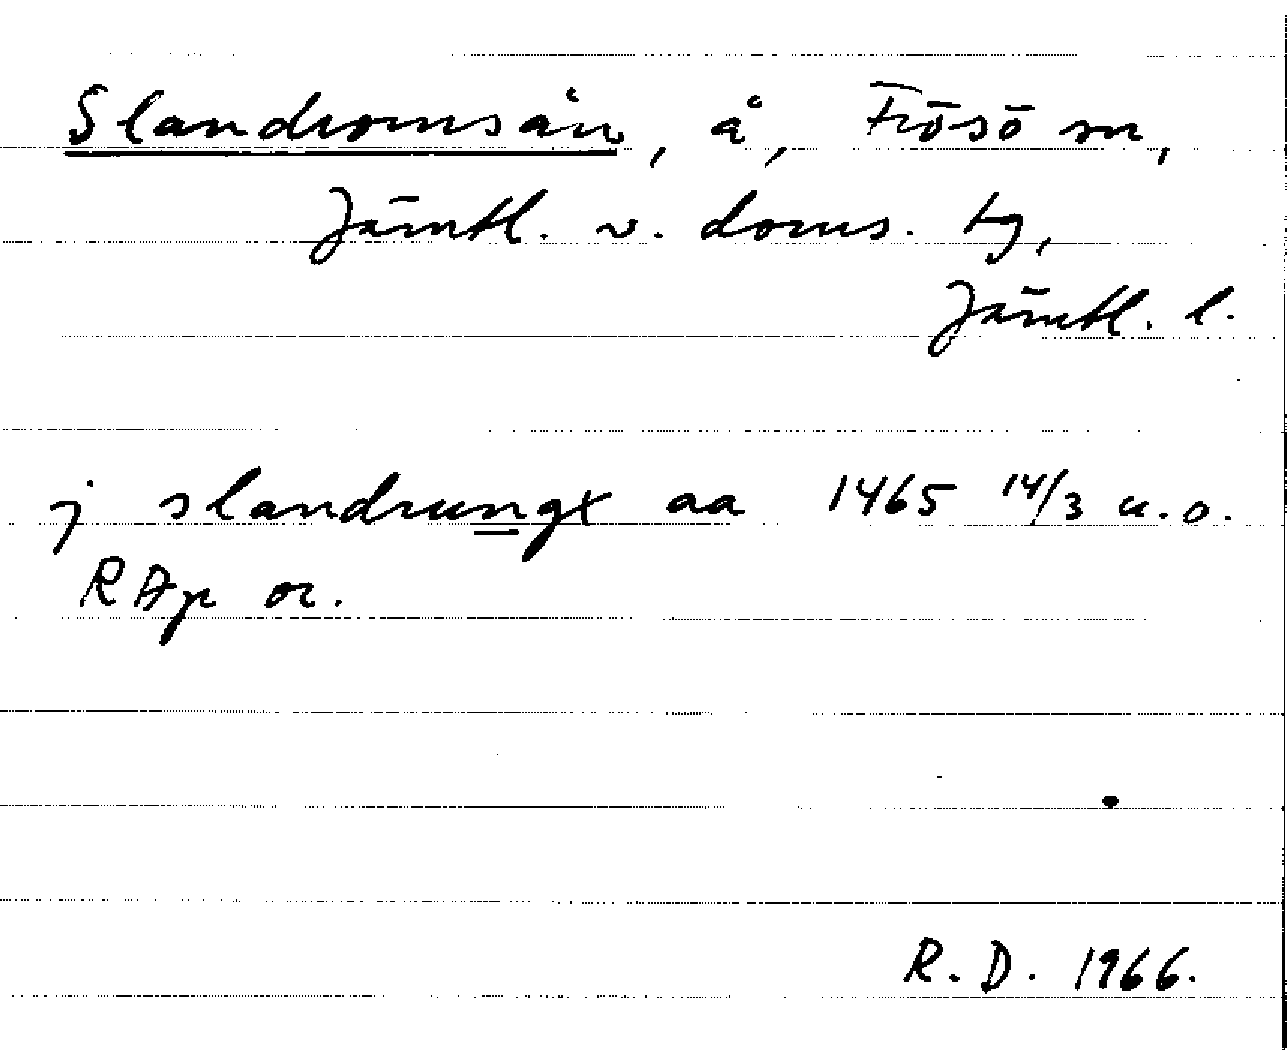 Slandromsån, å, Frösö sn,
Jämtl. v. doms. tg,
Jämtl. l.
j slandrungx aa 1465 14/3 u.o.
RAp or.
R.D. 1966.